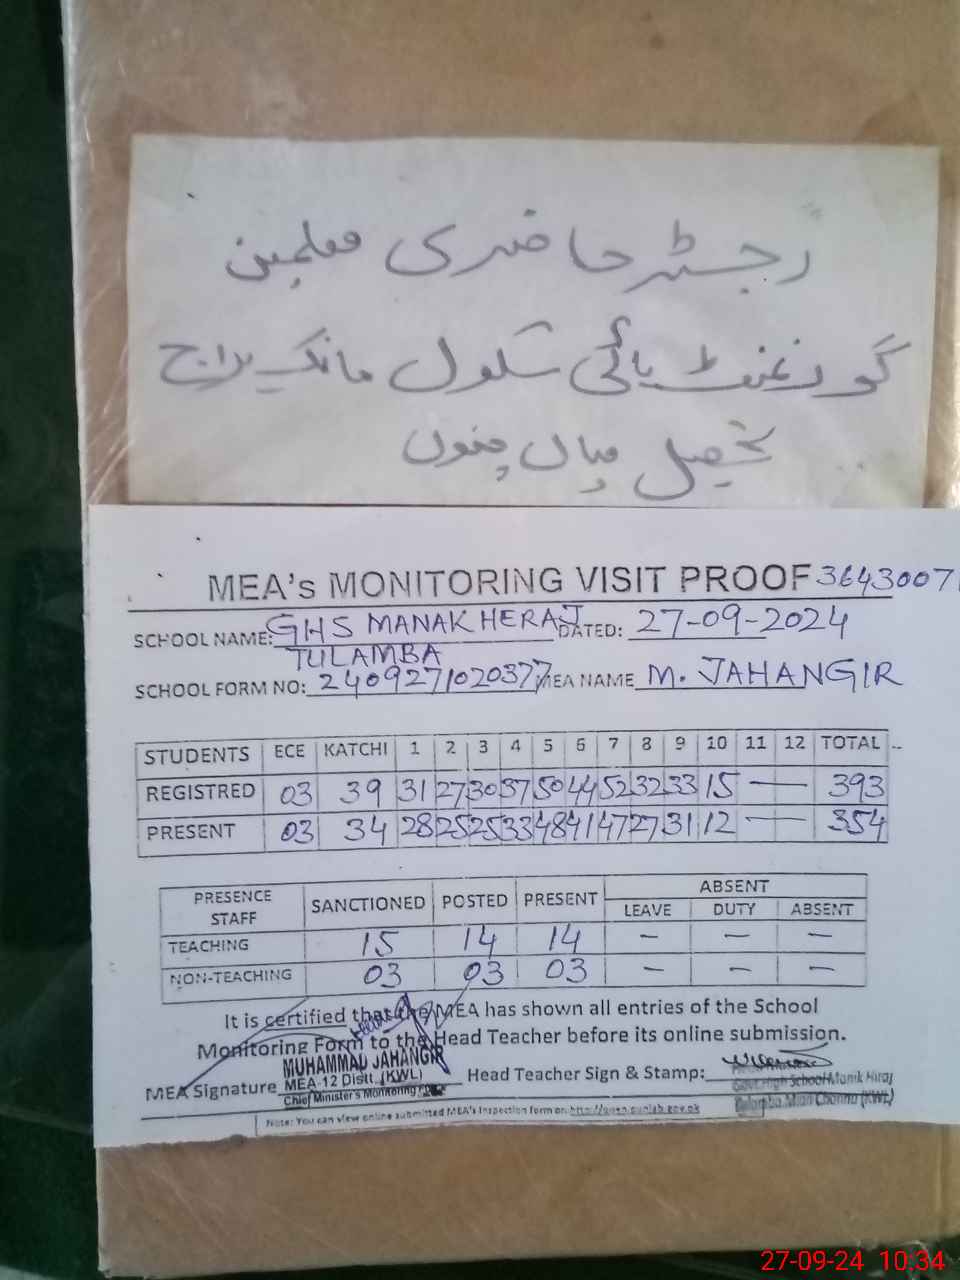 رجسٹر حاضری معلمین
گورنمنٹ ہائی سکول مانک ہراج
تحصیل میاں چنوں
MEA's MONITORING VISIT PROOF 3643007
SCHOOL NAME: GHS MANAK HERAJ DATED: 27-09-2024
TULAMBA
SCHOOL FORM NO: 2409271020377 MEA NAME M. JAHANGIR
STUDENTS ECE KATCHI 1 2 3 4 5 6 7 8 9 10 11 12 TOTAL
REGISTRED 03 39 31 27 30 37 50 44 52 32 33 15 — 393
PRESENT 03 34 28 25 25 33 48 41 47 27 31 12 — 354
PRESENCE STAFF SANCTIONED POSTED PRESENT ABSENT
LEAVE DUTY ABSENT
TEACHING 15 14 14 – – –
NON-TEACHING 03 03 03 – – –
It is certified that the MEA has shown all entries of the School
Monitoring Form to the Head Teacher before its online submission.
MUHAMMAD JAHANGIR
MEA Signature MEA-12 Distt. (KWL) Head Teacher Sign & Stamp:
Chief Minister's Monitoring
Govt. High School Manik Hiraj
Tulamba Mian Channu (KWL)
Note: You can view online submitted MEA's Inspection form on:
27-09-24 10:34